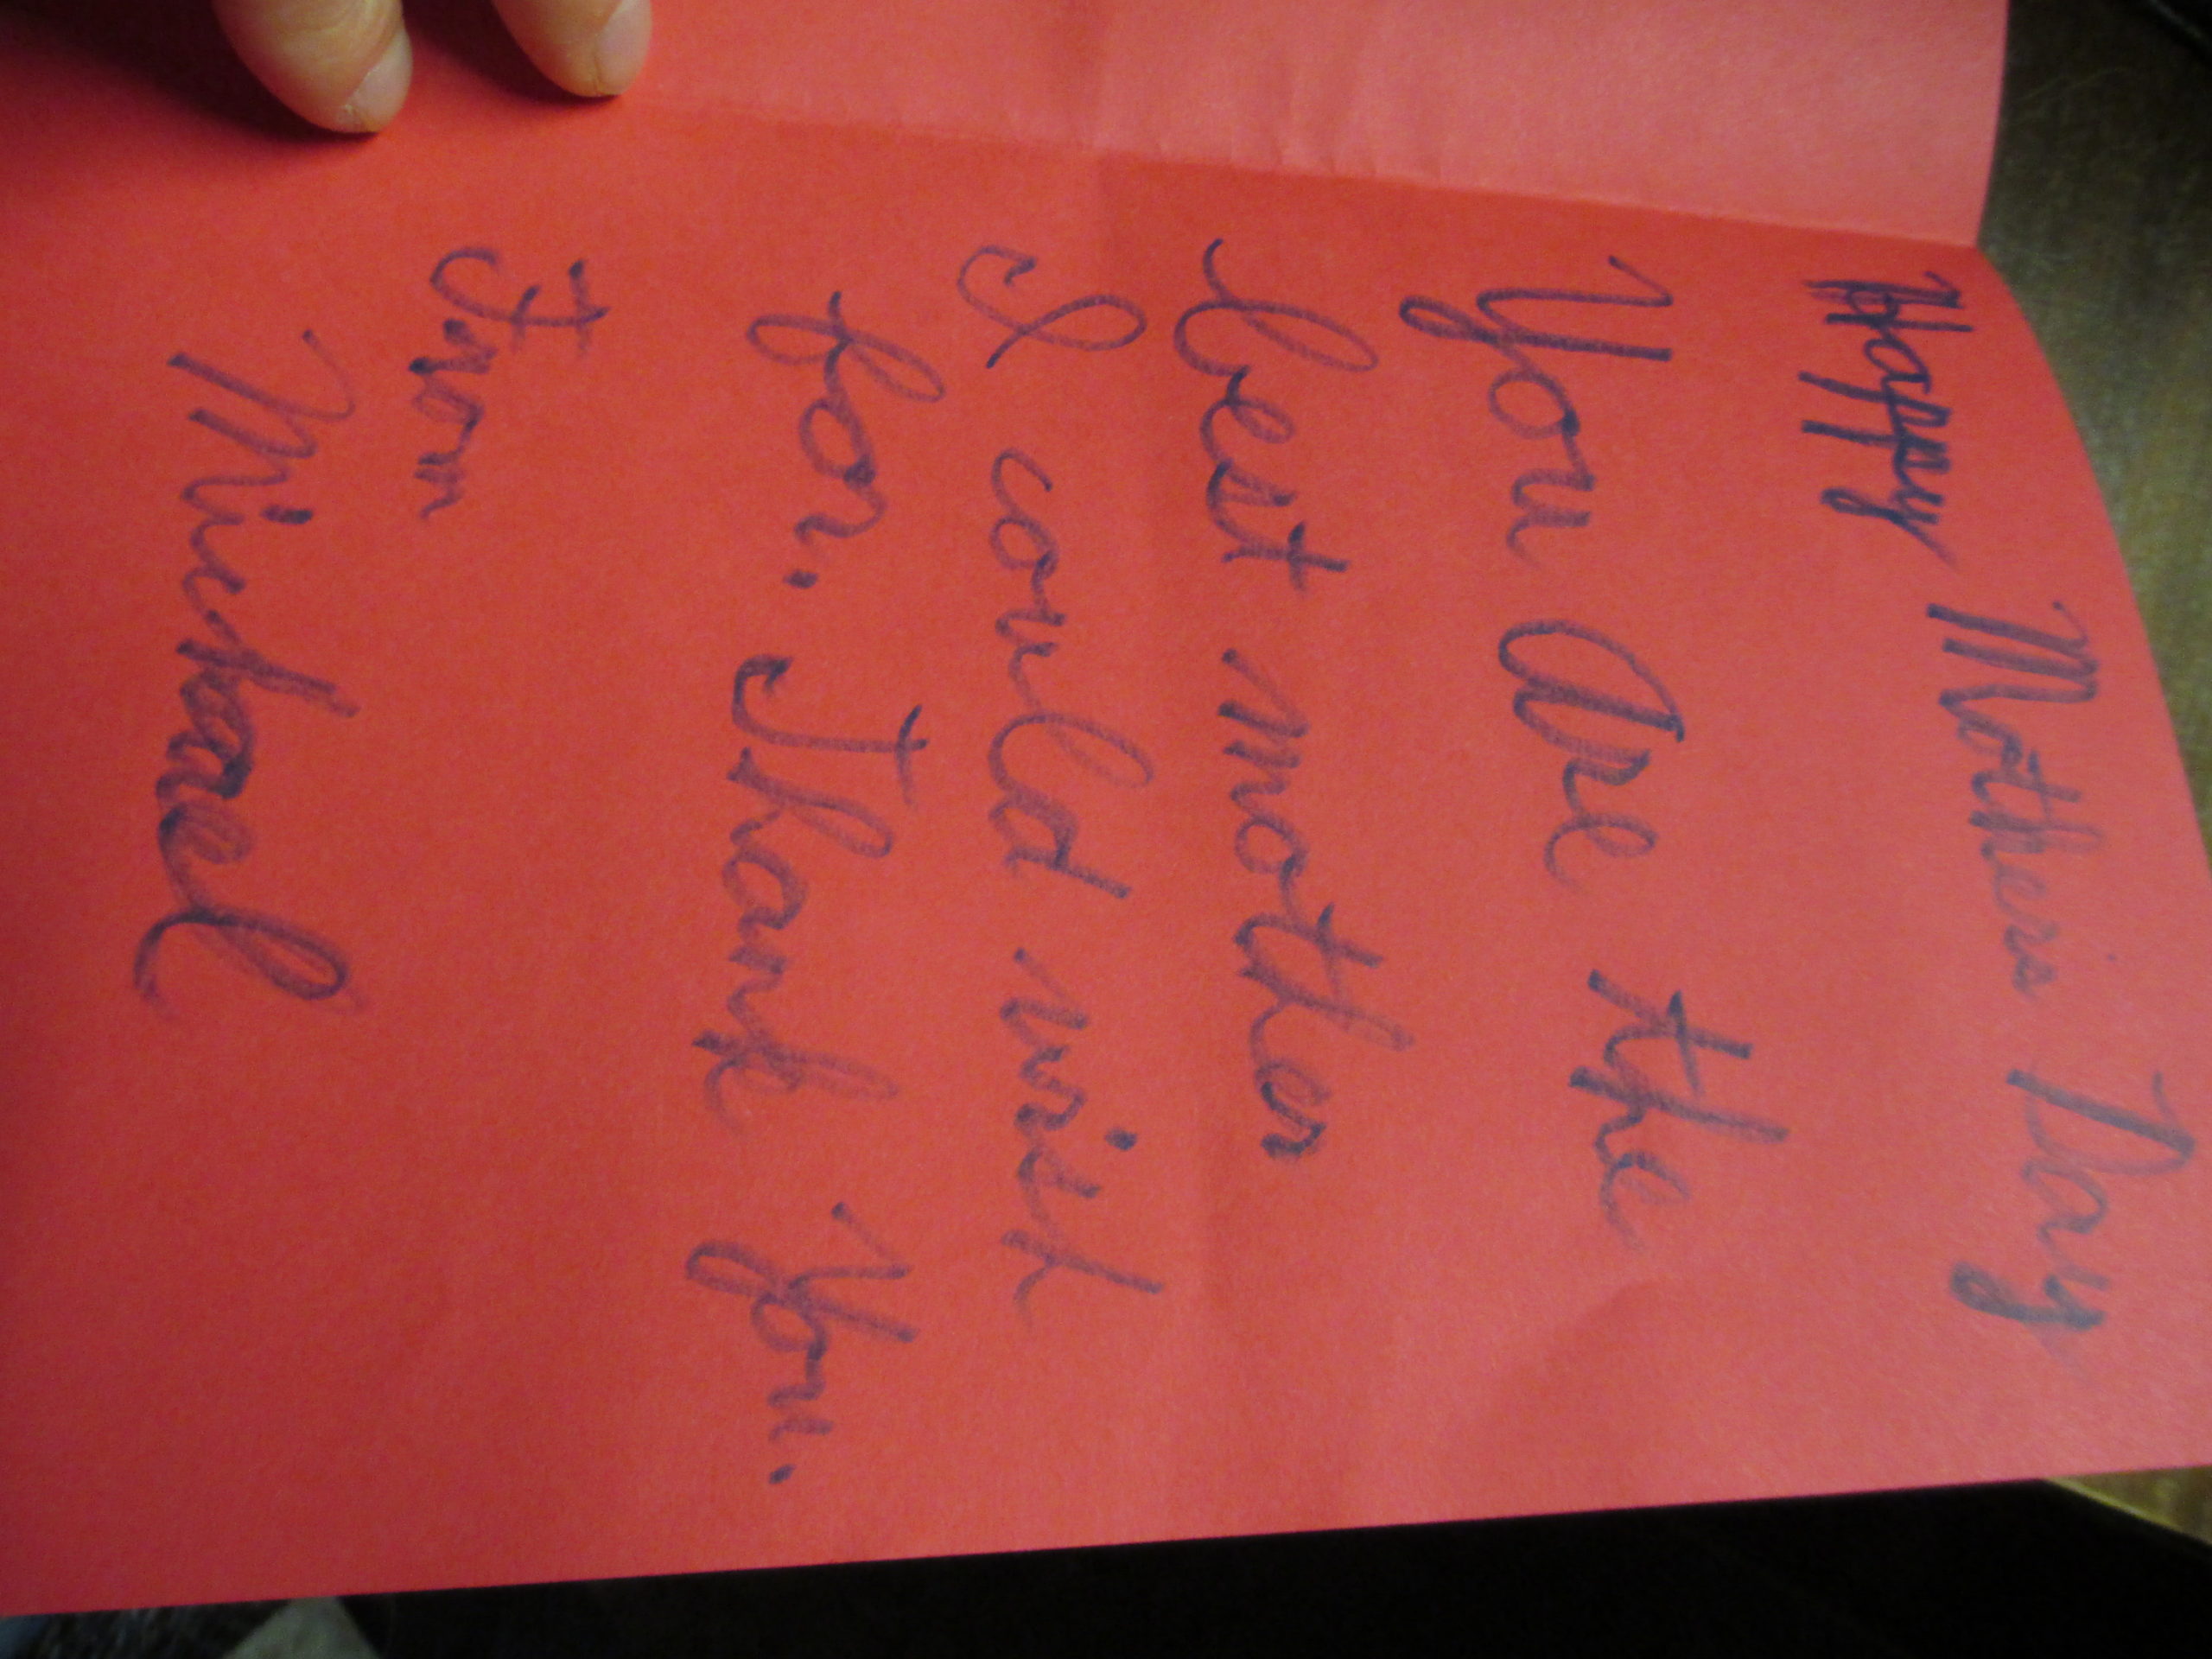 Happy Mother's Day
You Are the
best mother
I could wish
for. Thank You.
From
Michael